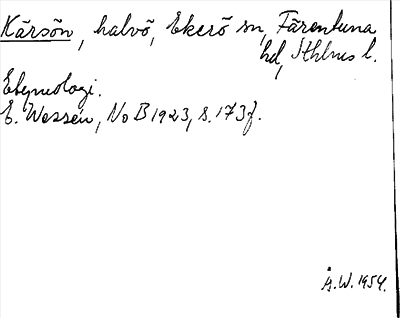 Kärsön, halvö, Ekerö sn, Färentuna
hd, Sthlms l.
Etymologi.
E. Wessén, NoB 1923, s. 173 f.
Å.W. 1954.